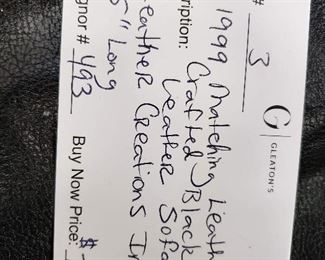 # 3
G GLEATON'S
ription:
1999 Matching Leath
Crafted Black
Leather Sofa
eather Creations In
5" Long
gnor # 493
Buy Now Price: $